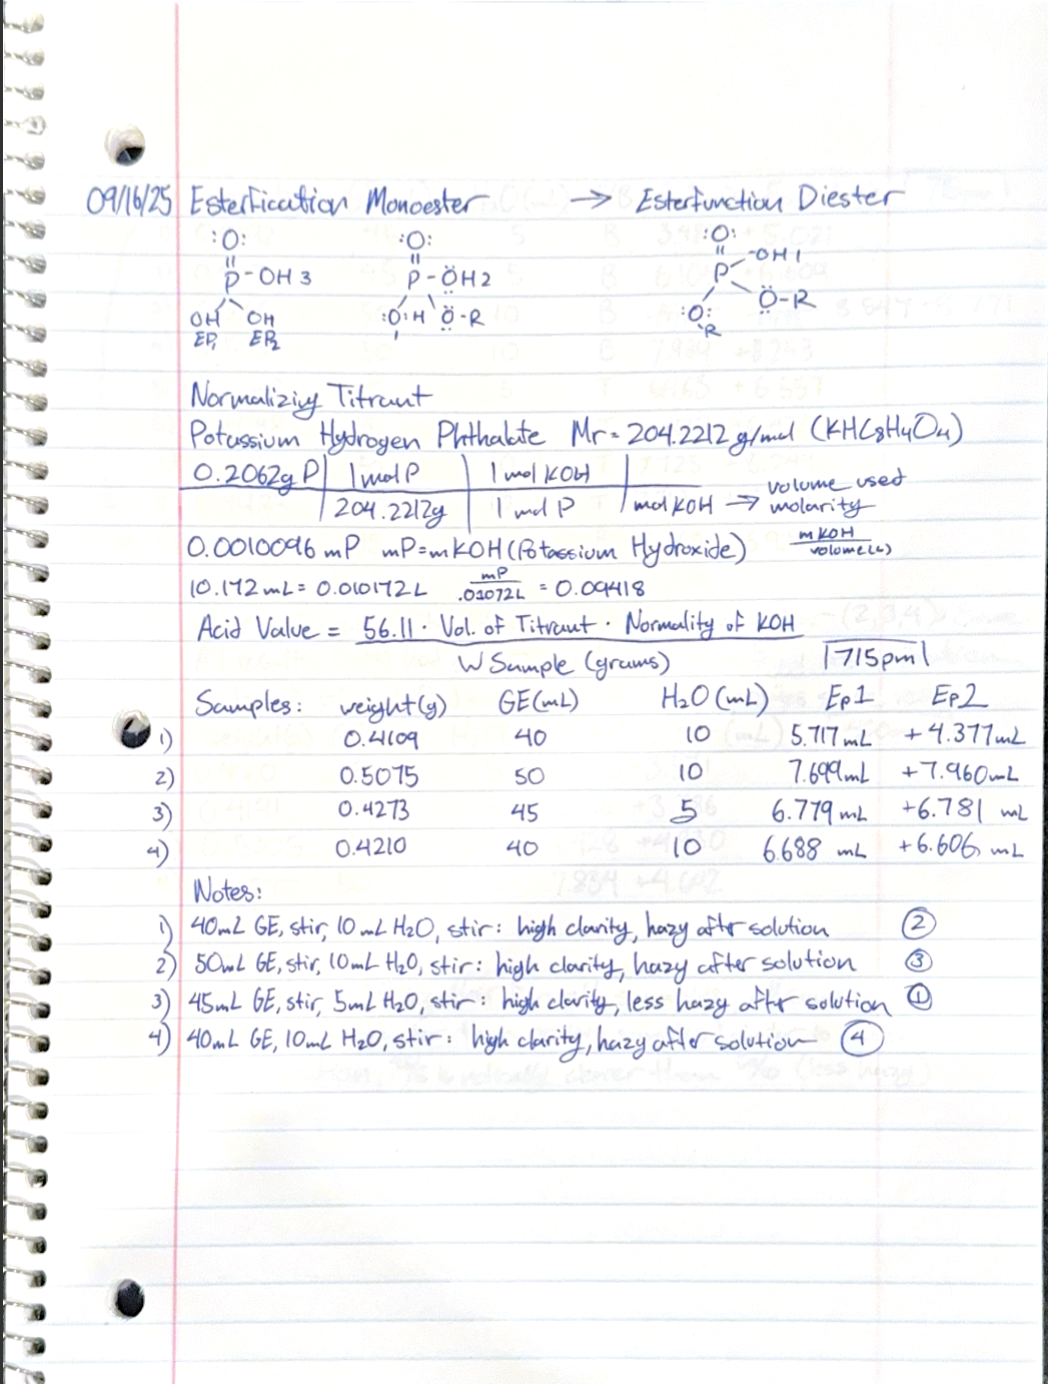 09/16/25 Esterfication Monoester → Esterfunction Diester
:O: :O: :O:
P-OH 3 P-ÖH2 P -OH 1
OH OH :O:H Ö-R :O: Ö-R
EP1 EP2 R
Normalizing Titrant
Potassium Hydrogen Phthalate Mr = 204.2212 g/mol (KHC8H4O4)
0.2062g P | 1 mol P | 1 mol KOH |
204.2212g | 1 mol P | mol KOH → volume used
molarity
0.0010096 mP mP=mKOH (Potassium Hydroxide) mKOH
volume(L)
10.172mL = 0.010172L mP/.01072L = 0.09418
Acid Value = 56.11 · Vol. of Titrant · Normality of KOH
W Sample (grams) |715pm|
Samples: weight(g) GE(mL) H2O (mL) Ep1 Ep2
1) 0.4109 40 10 5.717 mL + 4.377mL
2) 0.5075 50 10 7.699mL +7.960mL
3) 0.4273 45 5 6.779 mL +6.781 mL
4) 0.4210 40 10 6.688 mL +6.606 mL
Notes:
1) 40mL GE, stir, 10 mL H2O, stir: high clarity, hazy aftr solution ②
2) 50mL GE, stir, 10mL H2O, stir: high clarity, hazy after solution ③
3) 45mL GE, stir, 5mL H2O, stir: high clarity, less hazy aftr solution ①
4) 40mL GE, 10mL H2O, stir: high clarity, hazy after solution ④